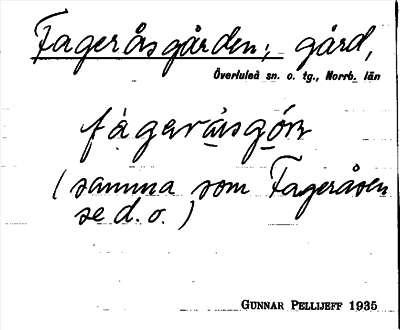 Fageråsgården; gård,
Överluleå sn. o. tg., Norrb. län
(samma som Fageråsen
se d. o.)
GUNNAR PELLIJEFF 1935